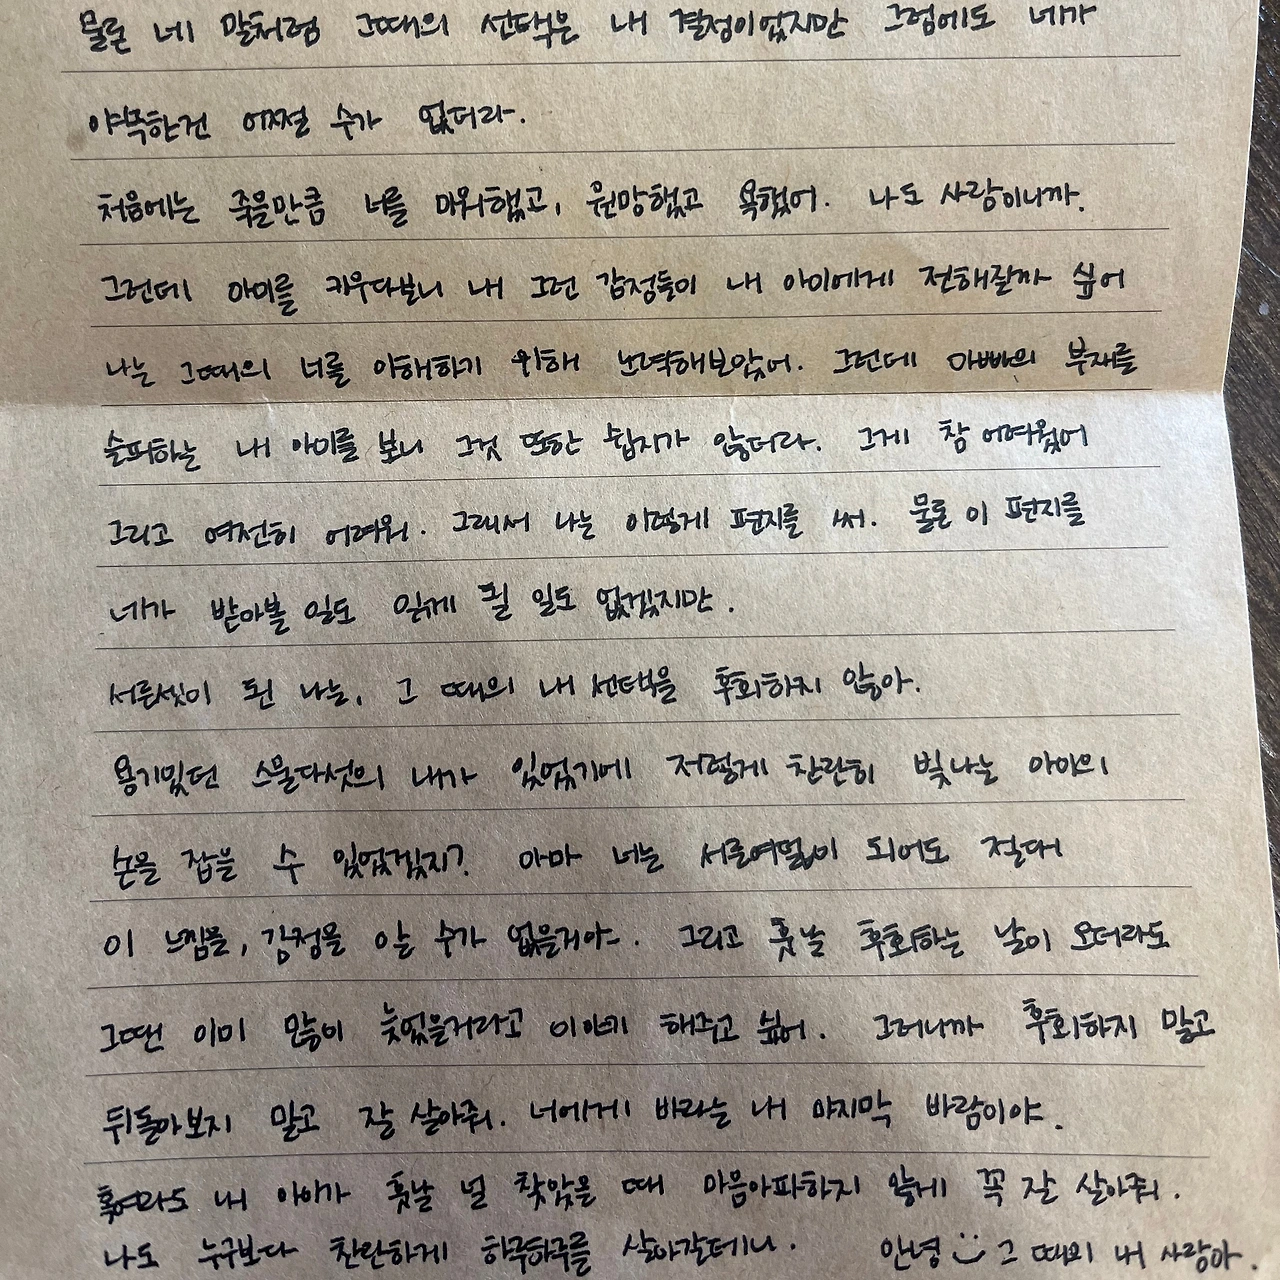 물론 네 말처럼 그때의 선택은 내 결정이었지만 그럼에도 네가
야속한건 어쩔 수가 없더라.
처음에는 죽을만큼 너를 미워했고, 원망했고 욕했어. 나도 사람이니까.
그런데 아이를 키우다보니 내 그런 감정들이 내 아이에게 전해질까 싶어
나는 그때의 너를 이해하기 위해 노력해보았어. 그런데 아빠의 부재를
슬퍼하는 내 아이를 보니 그것 또한 쉽지가 않더라. 그게 참 어려웠어
그리고 여전히 어려워. 그래서 나는 이렇게 편지를 써. 물론 이 편지를
네가 받아볼 일도 읽게 될 일도 없겠지만.
서른셋이 된 나는, 그 때의 내 선택을 후회하지 않아.
용기있던 스물다섯의 내가 있었기에 저렇게 찬란히 빛나는 아이의
손을 잡을 수 있었겠지? 아마 너는 서른여덟이 되어도 절대
이 느낌을, 감정을 알 수가 없을거야. 그리고 훗날 후회하는 날이 오더라도
그땐 이미 많이 늦었을거라고 이야기 해주고 싶어. 그러니까 후회하지 말고
뒤돌아보지 말고 잘 살아줘. 너에게 바라는 내 마지막 바람이야.
혹여라도 내 아이가 훗날 널 찾았을 때 마음아파하지 않게 꼭 잘 살아줘.
나도 누구보다 찬란하게 하루하루를 살아갈테니. 안녕 :) 그 때의 내 사랑아.